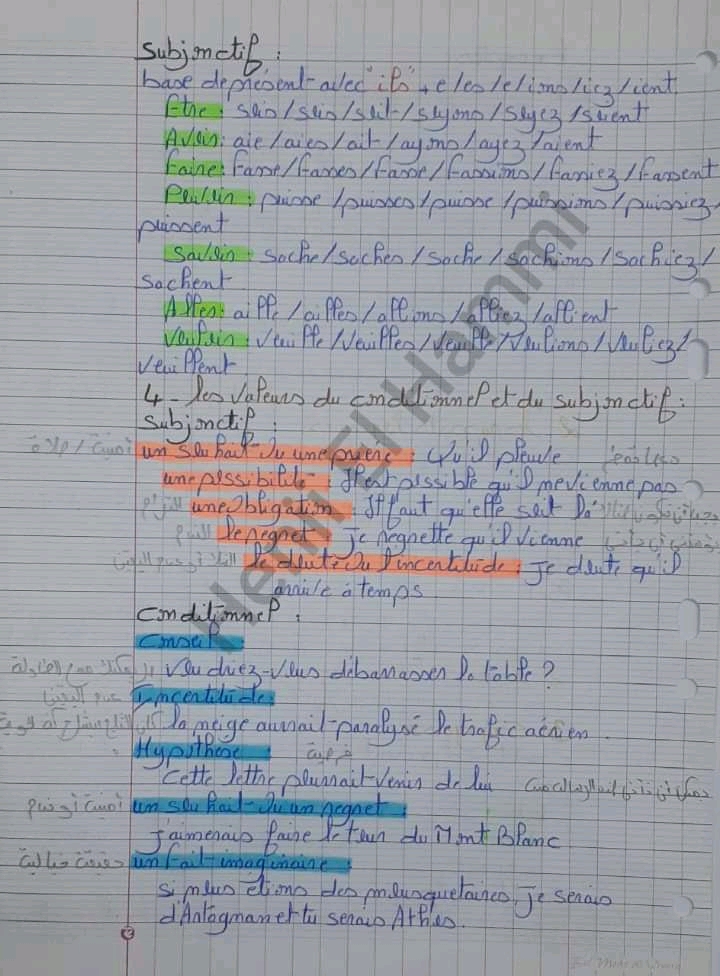 Subjonctif :
base de présent avec "ils" + e/es/e/ions/iez/ient
Etre : sois/sois/soit/soyons/soyez/soient
Avoir : aie/aies/ait/ayons/ayez/aient
Faire : Fasse/Fasses/Fasse/Fassions/Fassiez/Fassent
Pouvoir : puisse/puisses/puisse/puissions/puissiez/
puissent
Savoir : sache/saches/sache/sachions/sachiez/
sachent
Aller : aille/ailles/allions/alliez/allient
Vouloir : veuille/Veuilles/Veuille/Veulions/Veuliez/
Veuillent
4 - les valeurs du conditionnel et du subjonctif :
Subjonctif :
un souhait ou une prière : Qu'il pleuve
une possibilité : Il est possible qu'il ne vienne pas
une obligation : Il faut qu'elle soit là
le regret je regrette qu'il vienne
le doute ou l'incertitude : Je doute qu'il
arrive à temps
Conditionnel :
Conseil
Voudriez-vous débarrasser la table ?
Incertitude :
la neige aurait paralysé le trafic aérien.
Hypothèse : فرضية
Cette lettre pourrait venir de lui
un souhait ou un regret :
J'aimerais faire le tour du Mont Blanc
un fait imaginaire : حقيقة خيالية
si nous étions des mousquetaires, je serais
d'Artagnan et tu serais Athos.
Henri El Hammi